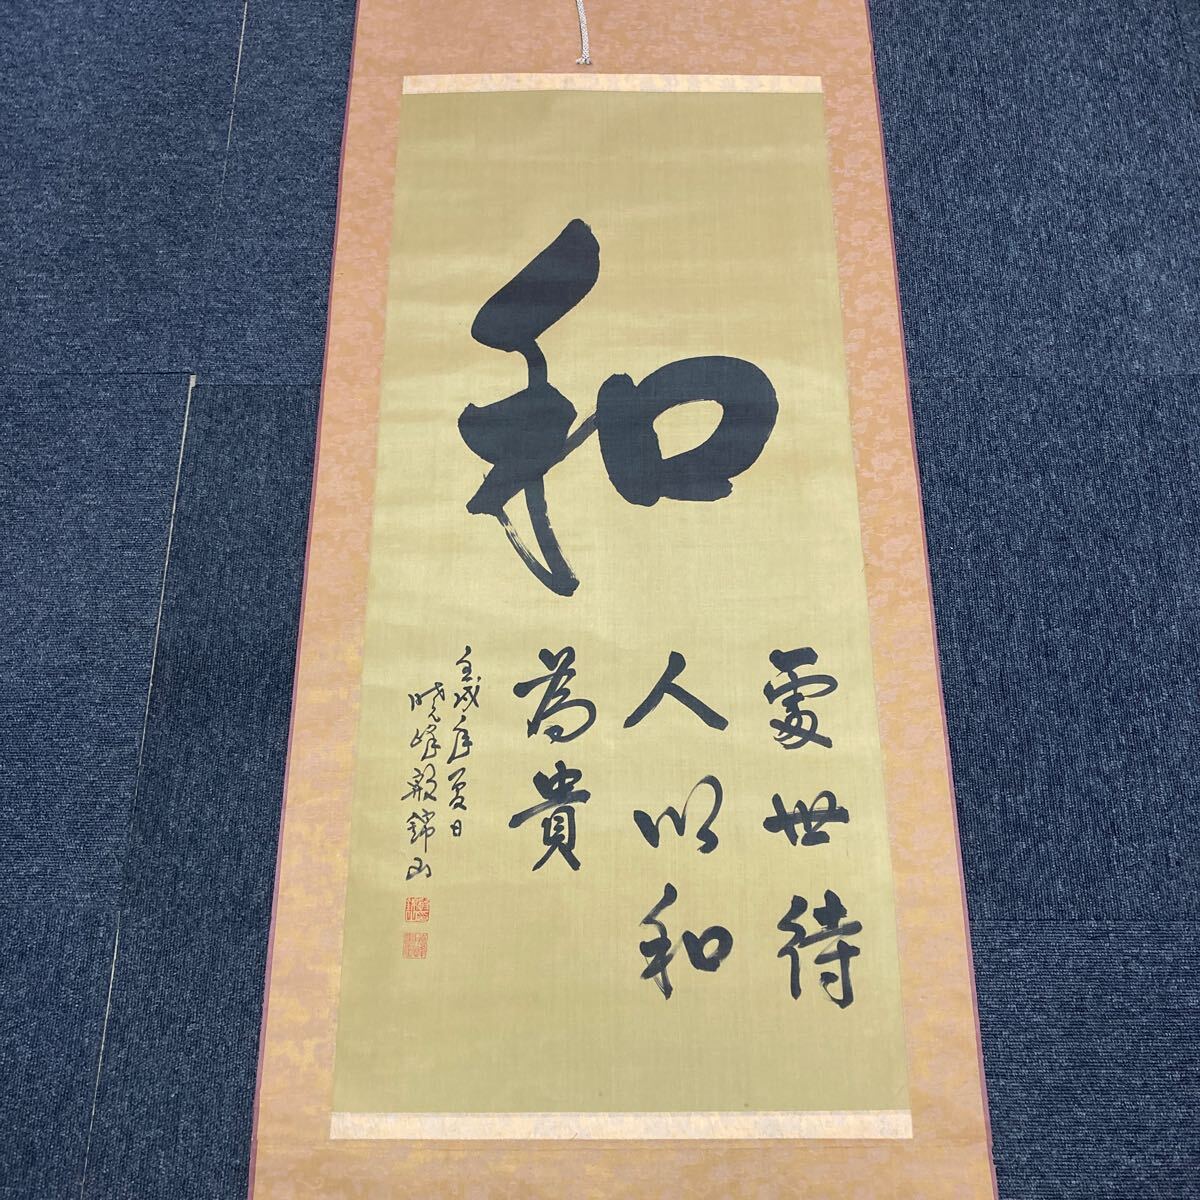 和
處世待
人以和
為貴
壬戌年夏日
曉峰殷錦山